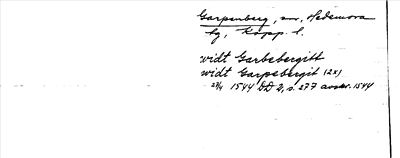 Garpenberg, sn, Hedemora
bg, Kopp. l.
widt Garbebergitt
widt Garpebergit (2x)
29/4 1544 DD 2, s. 277 avskr. 1544